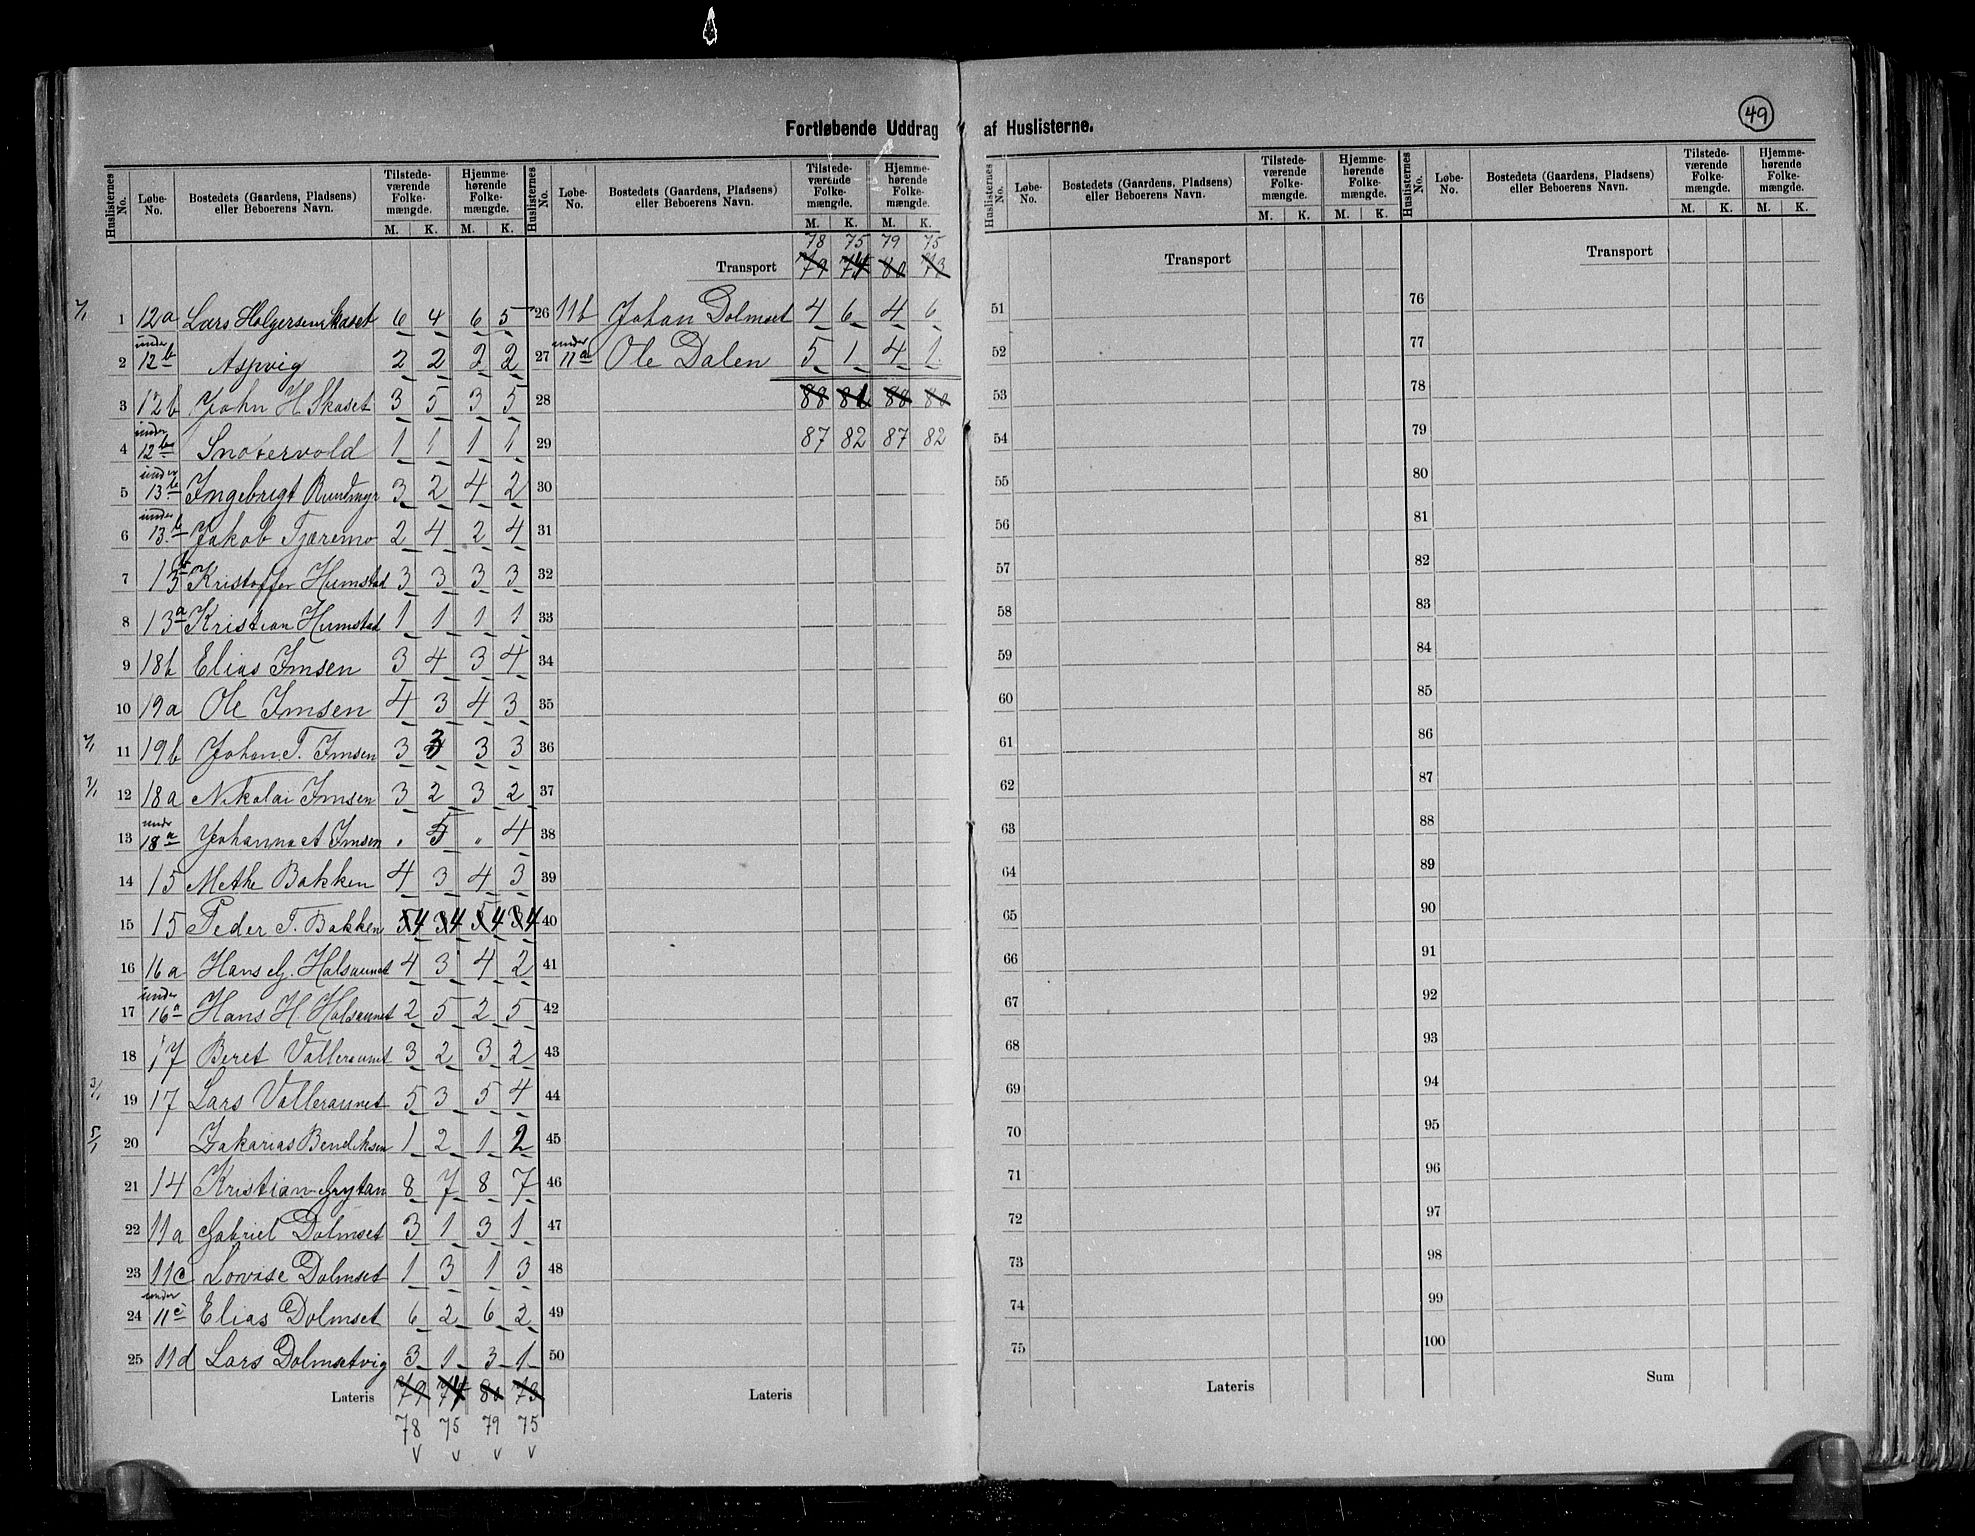 49
Fortløbende Uddrag af Huslisterne.
Huslisternes No. Løbe-No. Bostedets (Gaardens, Pladsens) eller Beboerens Navn. Tilstede-værende Folke-mængde. M. K. Hjemme-hørende Folke-mængde. M. K.
7/1 1 12a Lars Holgersen Skaset 6 4 6 5
2 under 12b Aspvig 2 2 2 2
3 12b John H Skaset 3 5 3 5
4 under 12b Snotervold 1 1 1 1
5 under 13b Ingebrigt Rundmyr 3 2 4 2
6 under 13b Jakob Tjæremo 2 4 2 4
7 13b Kristoffer Humstad 3 3 3 3
8 13a Kristian Humstad 1 1 1 1
9 18b Elias Imsen 3 4 3 4
10 19a Ole Imsen 4 3 4 3
11 19b Johan T. Imsen 3 3 3 3
12 18a Nikolai Imsen 3 2 3 2
13 under 18a Johanna Imsen " 5 " 4
14 15 Methe Bakken 4 3 4 3
15 15 Peder T. Bakken 5 4 3 4 5 4 3 4
16 16a Hans J. Halsaunet 4 3 4 2
17 under 16a Hans H. Halsaunet 2 5 2 5
18 17 Beret Valleraunet 3 2 3 2
3/1 19 17 Lars Valleraunet 5 3 5 4
5/1 20 Zakarias Bendiksen 1 2 1 2
21 14 Kristian Grytan 8 7 8 7
22 11a Gabriel Dolmset 3 1 3 1
23 11c Lovise Dolmset 1 3 1 3
24 under 11c Elias Dolmset 6 2 6 2
25 11d Lars Dolmsetvig 3 1 3 1
Lateris 79 74 80 73
78 75 79 75
Huslisternes No. Løbe-No. Bostedets (Gaardens, Pladsens) eller Beboerens Navn. Tilstede-værende Folke-mængde. M. K. Hjemme-hørende Folke-mængde. M. K.
78 75 79 75
Transport 79 74 80 73
26 11b Johan Dolmset 4 6 4 6
27 under 11a Ole Dalen 5 1 4 1
28 88 81 88 80
29 87 82 87 82
30
31
32
33
34
35
36
37
38
39
40
41
42
43
44
45
46
47
48
49
50
Lateris
Huslisternes No. Løbe-No. Bostedets (Gaardens, Pladsens) eller Beboerens Navn. Tilstede-værende Folke-mængde. M. K. Hjemme-hørende Folke-mængde. M. K.
Transport
51
52
53
54
55
56
57
58
59
60
61
62
63
64
65
66
67
68
69
70
71
72
73
74
75
Lateris
Huslisternes No. Løbe-No. Bostedets (Gaardens, Pladsens) eller Beboerens Navn. Tilstede-værende Folke-mængde. M. K. Hjemme-hørende Folke-mængde. M. K.
Transport
76
77
78
79
80
81
82
83
84
85
86
87
88
89
90
91
92
93
94
95
96
97
98
99
100
Sum